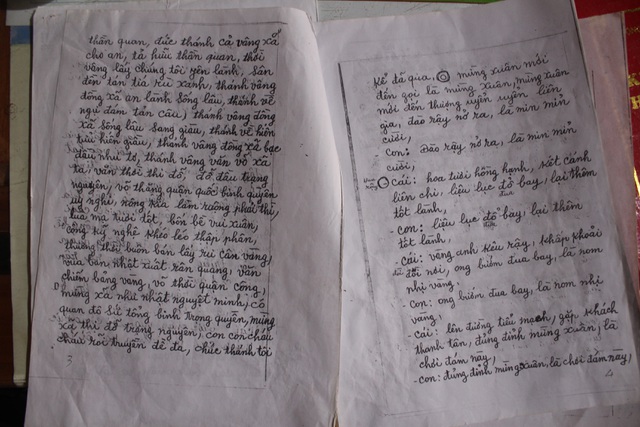 thần quan, đức thánh cả vâng xã
cho an, tả hữu thần quan, thời
vâng lấy chúng tôi yên lành, sân
đền tán tía rủ xanh, thánh vâng
đông xã an lành sống lâu, thánh về
ngự đám tán cầu, thánh vâng đông
xã sống lâu sang giàu, thánh về hiên
tựu hiên giầu, thánh vâng đông xã bạc
đầu như tơ, thánh vâng văn võ xã
ta, văn thời thi đỗ, đỗ đầu trạng
nguyên, võ thăng quận quốc binh quyền
uy nghi, nông kia làm ruộng phát thì
lúa mạ tươi tốt, bốn bề vui xuân,
công kỹ nghệ khéo léo thập phân,
thương thời buôn bán lấy cân vàng,
vừa bán nhật xuất rán quang, văn
chiếm bảng vàng, võ thời quận công,
mừng xã như nhật nguyệt minh, có
quan đô sứ tổng binh trọng quyền, mừng
xã thi đỗ trạng nguyên, con con cháu
cháu rồi truyền để đa, chúc thánh tôi
3
Kể đã qua, mừng xuân mới
đến gọi là mừng xuân, mừng xuân
mới đến thượng uyển uyên liên
gia, đào rây nở ra, là mỉn mỉn
cười,
- Con: Đào rây nở ra, là mỉn mỉn
cười,
cái: hoa tươi hồng hạnh, sót cành
liên chi, liệu lục đồ bay, lại thêm
đua
tốt lành,
- con: liệu lục đồ bay, lại thêm
đua
tốt lành,
- Cái: vâng anh kéo rây, khấp khoải
nơi nơi, ong bướm đua bay, là rom
nhị vàng,
- con: ong bướm đua bay, là rom nhị
vàng,
- Cái: lên đường tiểu mạch, gặp khách
thanh tân, đủng đỉnh mừng xuân, là
chơi đám này,
- con: đủng đỉnh mừng xuân, là chơi đám này,
4